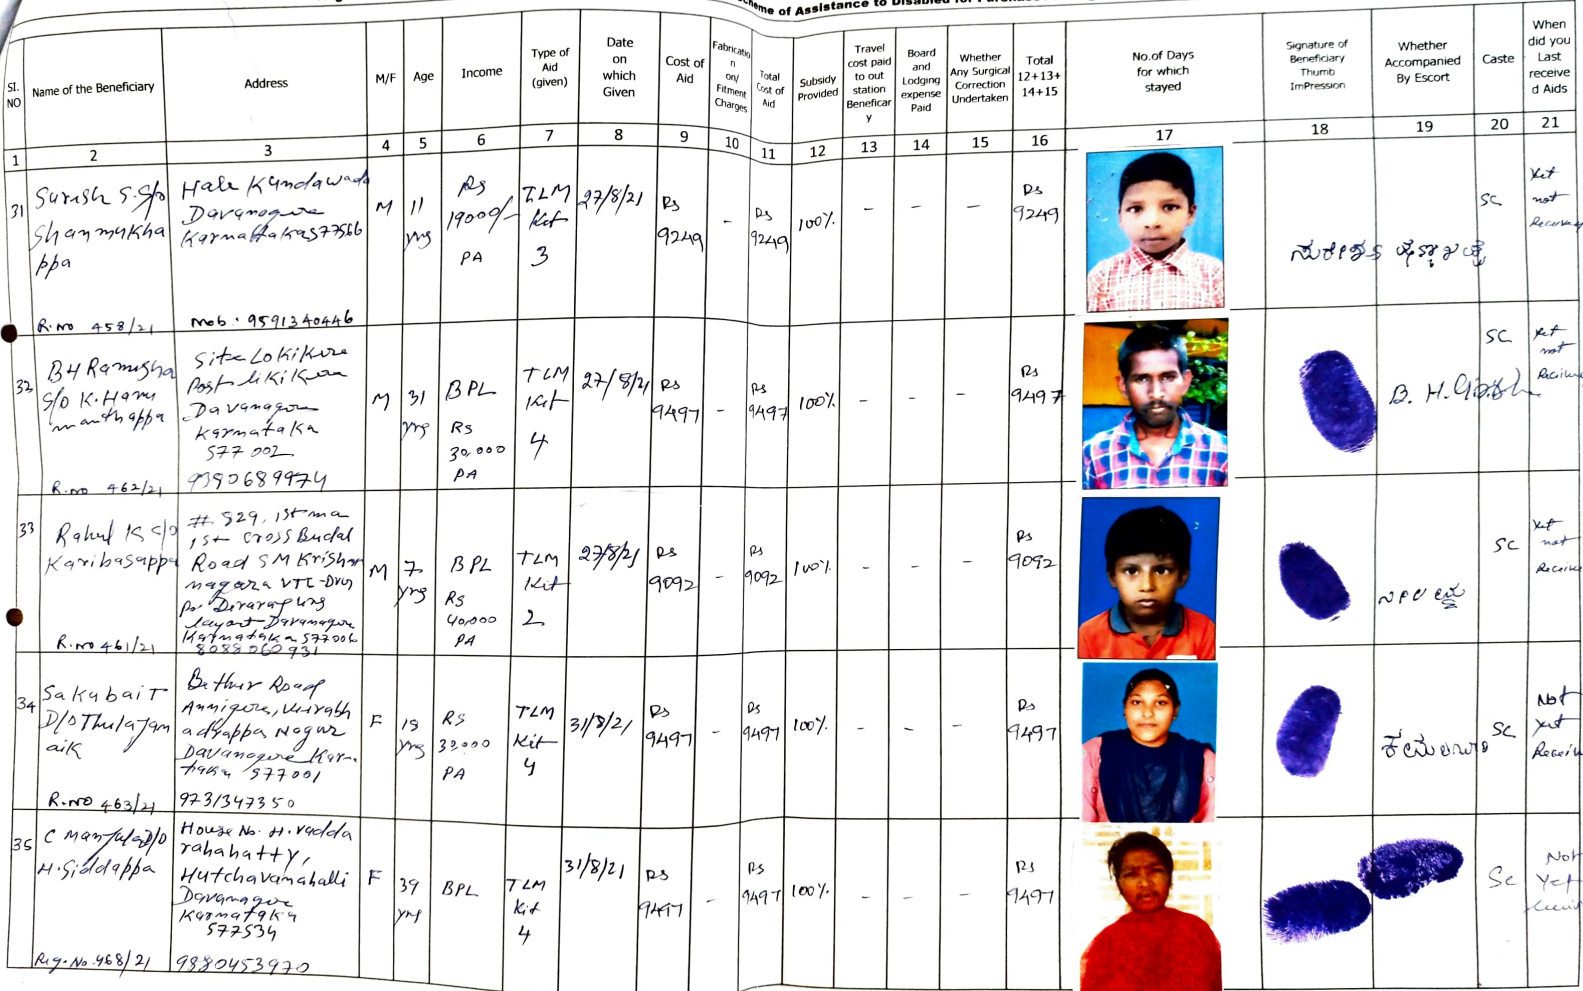 Scheme of Assistance to Disabled for
SI. NO
Name of the Beneficiary
Address
M/F
Age
Income
Type of Aid (given)
Date on which Given
Cost of Aid
Fabrication on/ Fitment Charges
Total Cost of Aid
Subsidy Provided
Travel cost paid to out station Beneficary
Board and Lodging expense Paid
Whether Any Surgical Correction Undertaken
Total 12+13+ 14+15
No.of Days for which stayed
Signature of Beneficiary Thumb ImPression
Whether Accompanied By Escort
Caste
When did you Last receive d Aids
1 2 3 4 5 6 7 8 9 10 11 12 13 14 15 16 17 18 19 20 21
31
Suresh S. S/o
Shanmukha
ppa
R.no 458/21
Hale Kundawada
Davanagere
Karnataka 577566
Mob: 9591340446
M
11 yrs
Rs 19000/- PA
TLM Kit 3
27/8/21
Rs 9249
-
Rs 9249
100%
- - -
Rs 9249
SC
Yet not Received
32
B H Ramesha
S/o K. Hanu
manthappa
R.no 462/21
Site Lokikere
Post
Davanagere
Karnataka
577 002
9380689974
M
31 yrs
BPL Rs 30,000 PA
TLM Kit 4
27/8/21
Rs 9497
-
Rs 9497
100%
- - -
Rs 9497
B. H.
SC
Yet not
33
Rahul K S/o
Karibasappa
R.no 461/21
# 529, 1st ma
1st cross Budal
Road S M Krishna
nagara VTC-Dvg
layout Davanagere
Karnataka 577006
8088060931
M
7 yrs
BPL Rs 40,000 PA
TLM Kit 2
27/8/21
Rs 9092
-
Rs 9092
100%
- - -
Rs 9092
SC
Yet not Receive
34
Sakubai T
D/O Thulajam
aik
R.NO 463/21
Bethur Road
Annigere, Veerabh
adrappa Nagar
Davanagere Kar-
taka 577001
9731347350
F
19 yrs
RS 32,000 PA
TLM Kit 4
31/8/21
Rs 9497
-
Rs 9497
100%
- - -
Rs 9497
ಕಮಲಾಬಾಯಿ
SC
Not Yet Receive
35
C Manjula D/o
H. Siddappa
Reg. No. 468/21
House No. H. vadda
rahahatty,
Hutchavanahalli
Davanagere
Karnataka
577534
9880453970
F
39 yrs
BPL
TLM Kit 4
31/8/21
Rs 9497
-
Rs 9497
100%
- - -
Rs 9497
SC
Not Yet